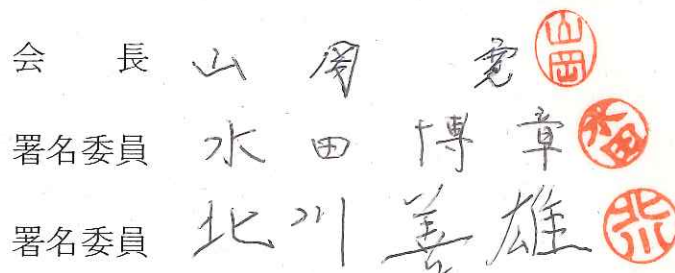 会長 山岡 山岡
署名委員 水田博章 水田
署名委員 北川善雄 北川